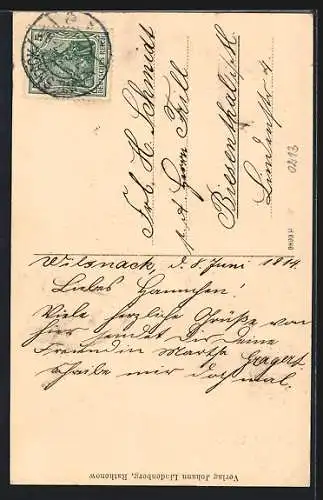 Frl. H. Schmidt
p. Adr. Herrn Trill
Biesenthal i./M.
Lindenstr. 4
0213
Wilsnack, d. 8. Juni 1914.
Liebes Hannchen!
Viele herzliche Grüße von
hier sendet Dir Deine
Freundin Martha Gragert
schreibe mir doch mal.
Verlag Johann Lindenberg, Rathenow